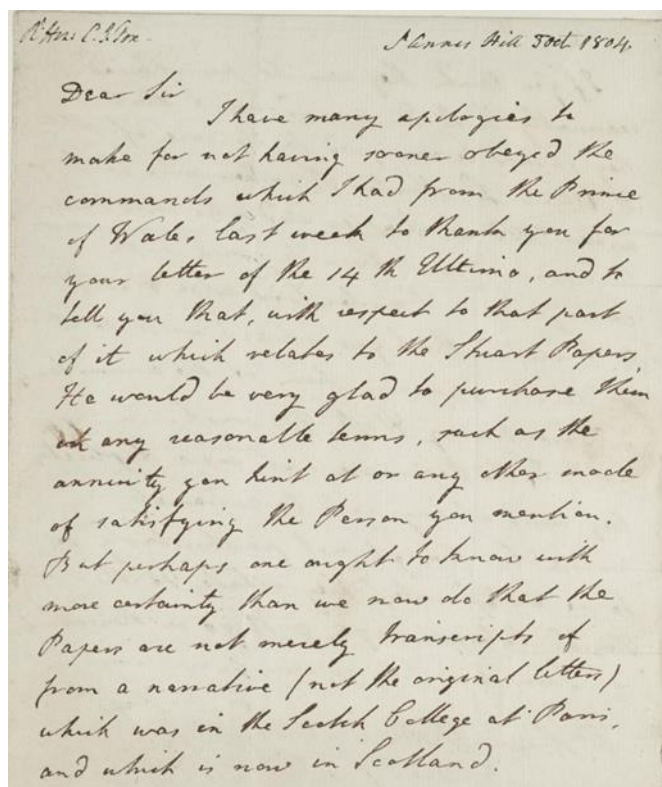 Rt Hon. C. J. Fox.
St Annes Hill 5 Oct. 1804.
Dear Sir
I have many apologies to
make for not having sooner obeyed the
commands which I had from the Prince
of Wales last week to thank you for
your letter of the 14th Ultimo, and to
tell you that, with respect to that part
of it which relates to the Stuart Papers
He would be very glad to purchase them
at any reasonable terms, such as the
annuity you hint at or any other mode
of satisfying the Person you mention.
But perhaps one ought to know with
more certainty than we now do that the
Papers are not merely transcripts of
from a narrative (not the original letters)
which was in the Scotch College at Paris,
and which is now in Scotland.